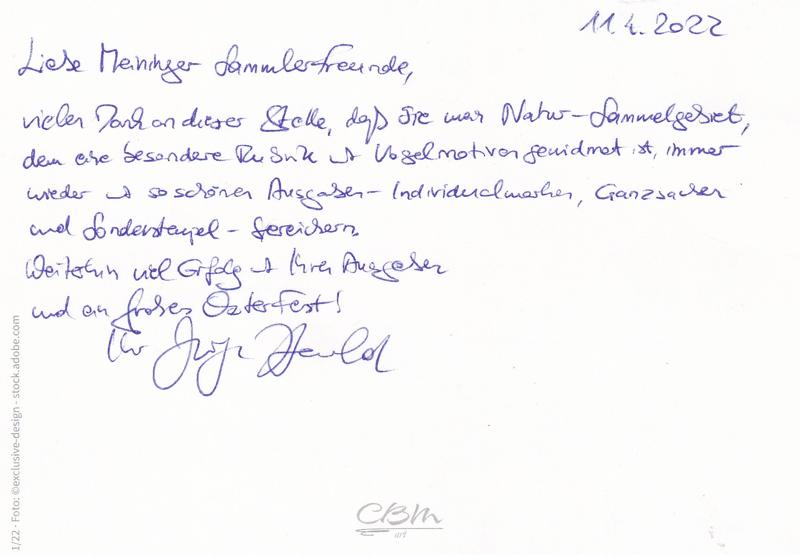 11.4.2022
Liebe Meininger Sammlerfreunde,
vielen Dank an dieser Stelle, daß Sie mein Natur-Sammelgebiet,
dem eine besondere Rubrik mit Vogelmotiven gewidmet ist, immer
wieder mit so schönen Ausgaben - Individualmarken, Ganzsachen
und Sonderstempel - bereichern.
Weiterhin viel Erfolg mit Ihren Ausgaben
und ein frohes Osterfest!
Ihr
1/22 · Foto: ©exclusive-design - stock.adobe.com
CBM
art